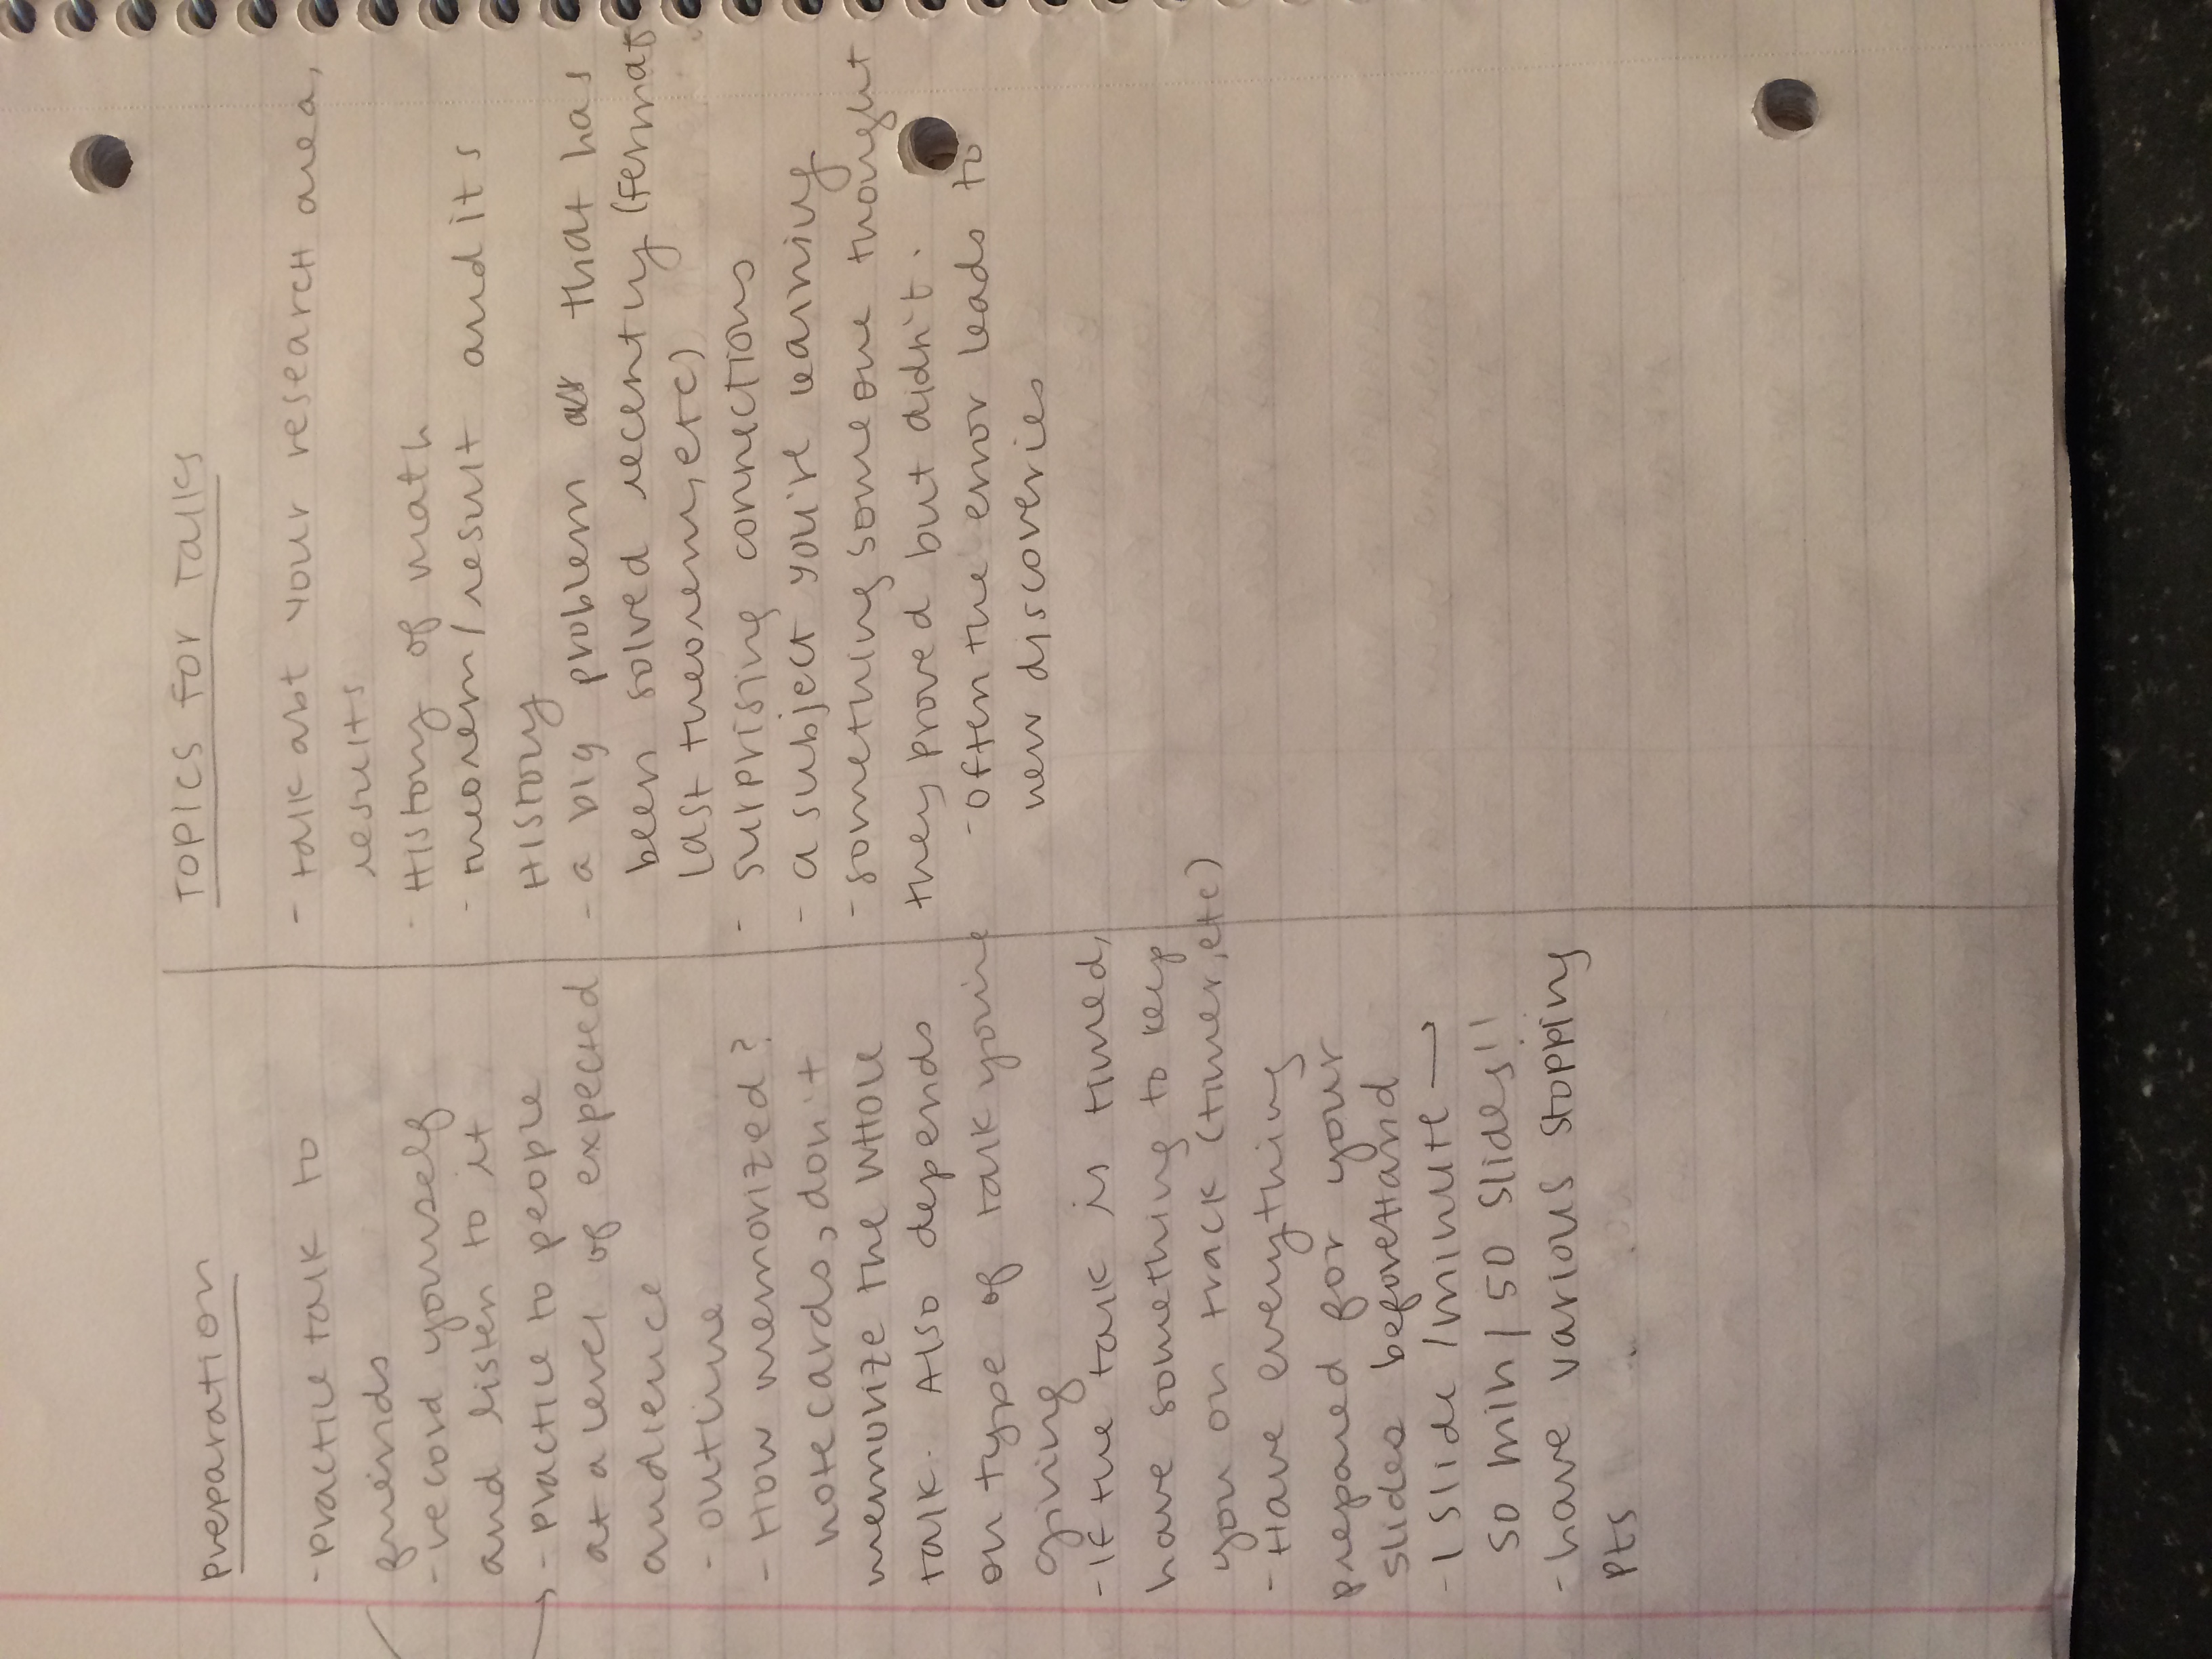 preparation
- practice talk to
friends
- record yourself
and listen to it
- practice to people
at a level of expected
audience
- outline
- How memorized?
note cards, don't
memorize the whole
talk. Also depends
on type of talk you're
giving
- If the talk is timed,
have something to keep
you on track (timer, etc)
- Have everything
prepared for your
slides beforehand
- 1 slide / minute →
50 min / 50 slides!!
- have various stopping
pts
Topics for Talks
- talk abt your research area,
results
- History of math
- theorem/result and its
History
- a big problem that has
been solved recently (Fermat
Last theorem, etc)
- surprising connections
- a subject you're learning
- something someone thought
they proved but didn't.
- often the error leads to
new discoveries